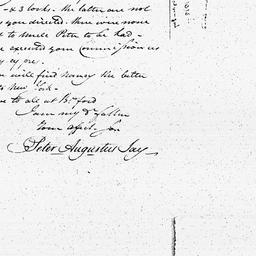 & 3 books. the latter are not
you directed. there were none
to Uncle Peter to be had -
executed your Commission as
will find Nancy the letter
New York -
to all at Bedford
I am my Dr father
Your affect. son
Peter Augustus Jay